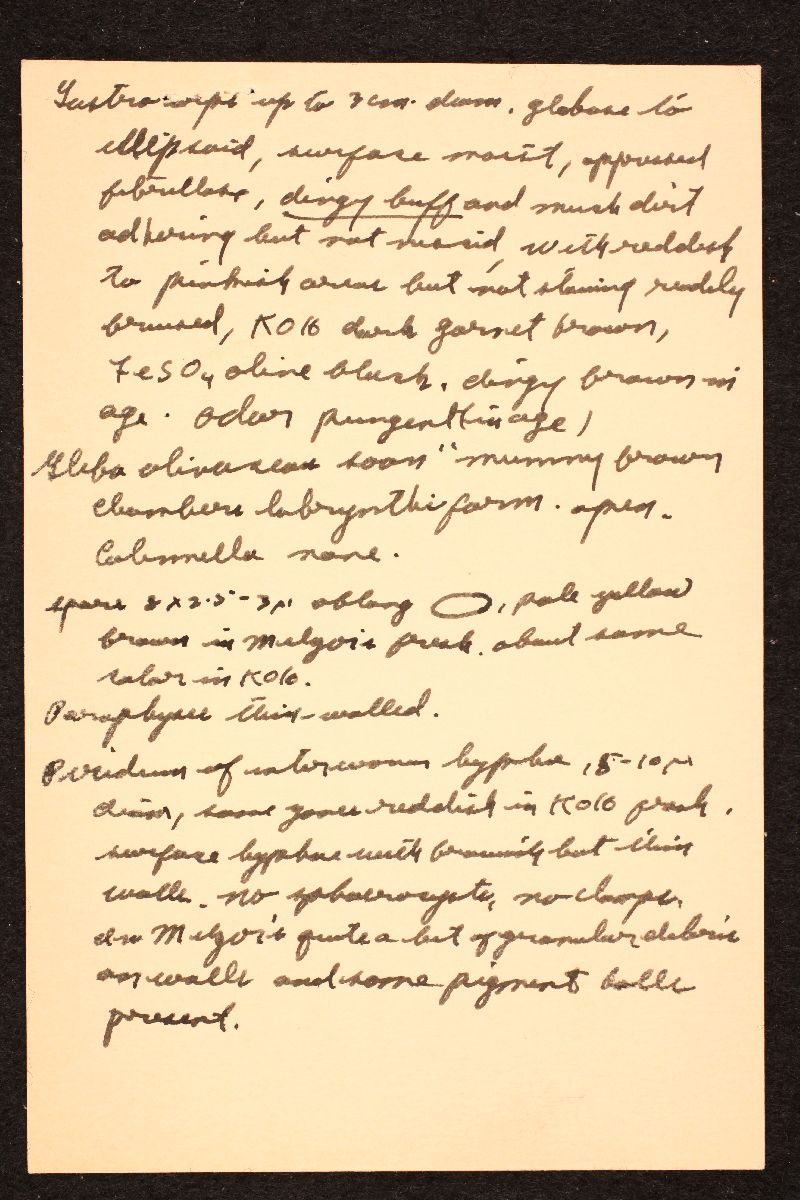 Gastrocarps up to 3 cm. diam. globose to
ellipsoid, surface moist, appressed
fibrillose, dingy buff and much dirt
adhering but not viscid, with reddish
to pinkish areas but not staining readily
bruised, KOH dark garnet brown,
FeSO4 olive black. dingy brown in
age. Odor pungent (in age)
Gleba olivaceous soon "mummy brown
Chambers labrynthiform. open.
Columnella none.
spore 8 x 2.5-3µ oblong, pale yellow
brown in Melzeris fresh. about same
color in KOH.
Paraphyses thin-walled.
Peridium of interwoven hyphae, 5-10µ
diam, some zones reddish in KOH fresh.
surface hyphae with brownish but thin
walls. no sphaerocysts, no clamps.
in Melzer's quite a bit of granular debris
on walls and some pigment balls
present.